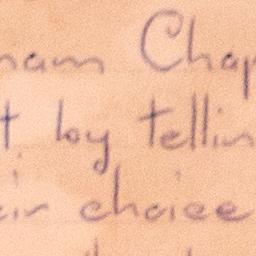 nam Chap
t by tellin
eir choice